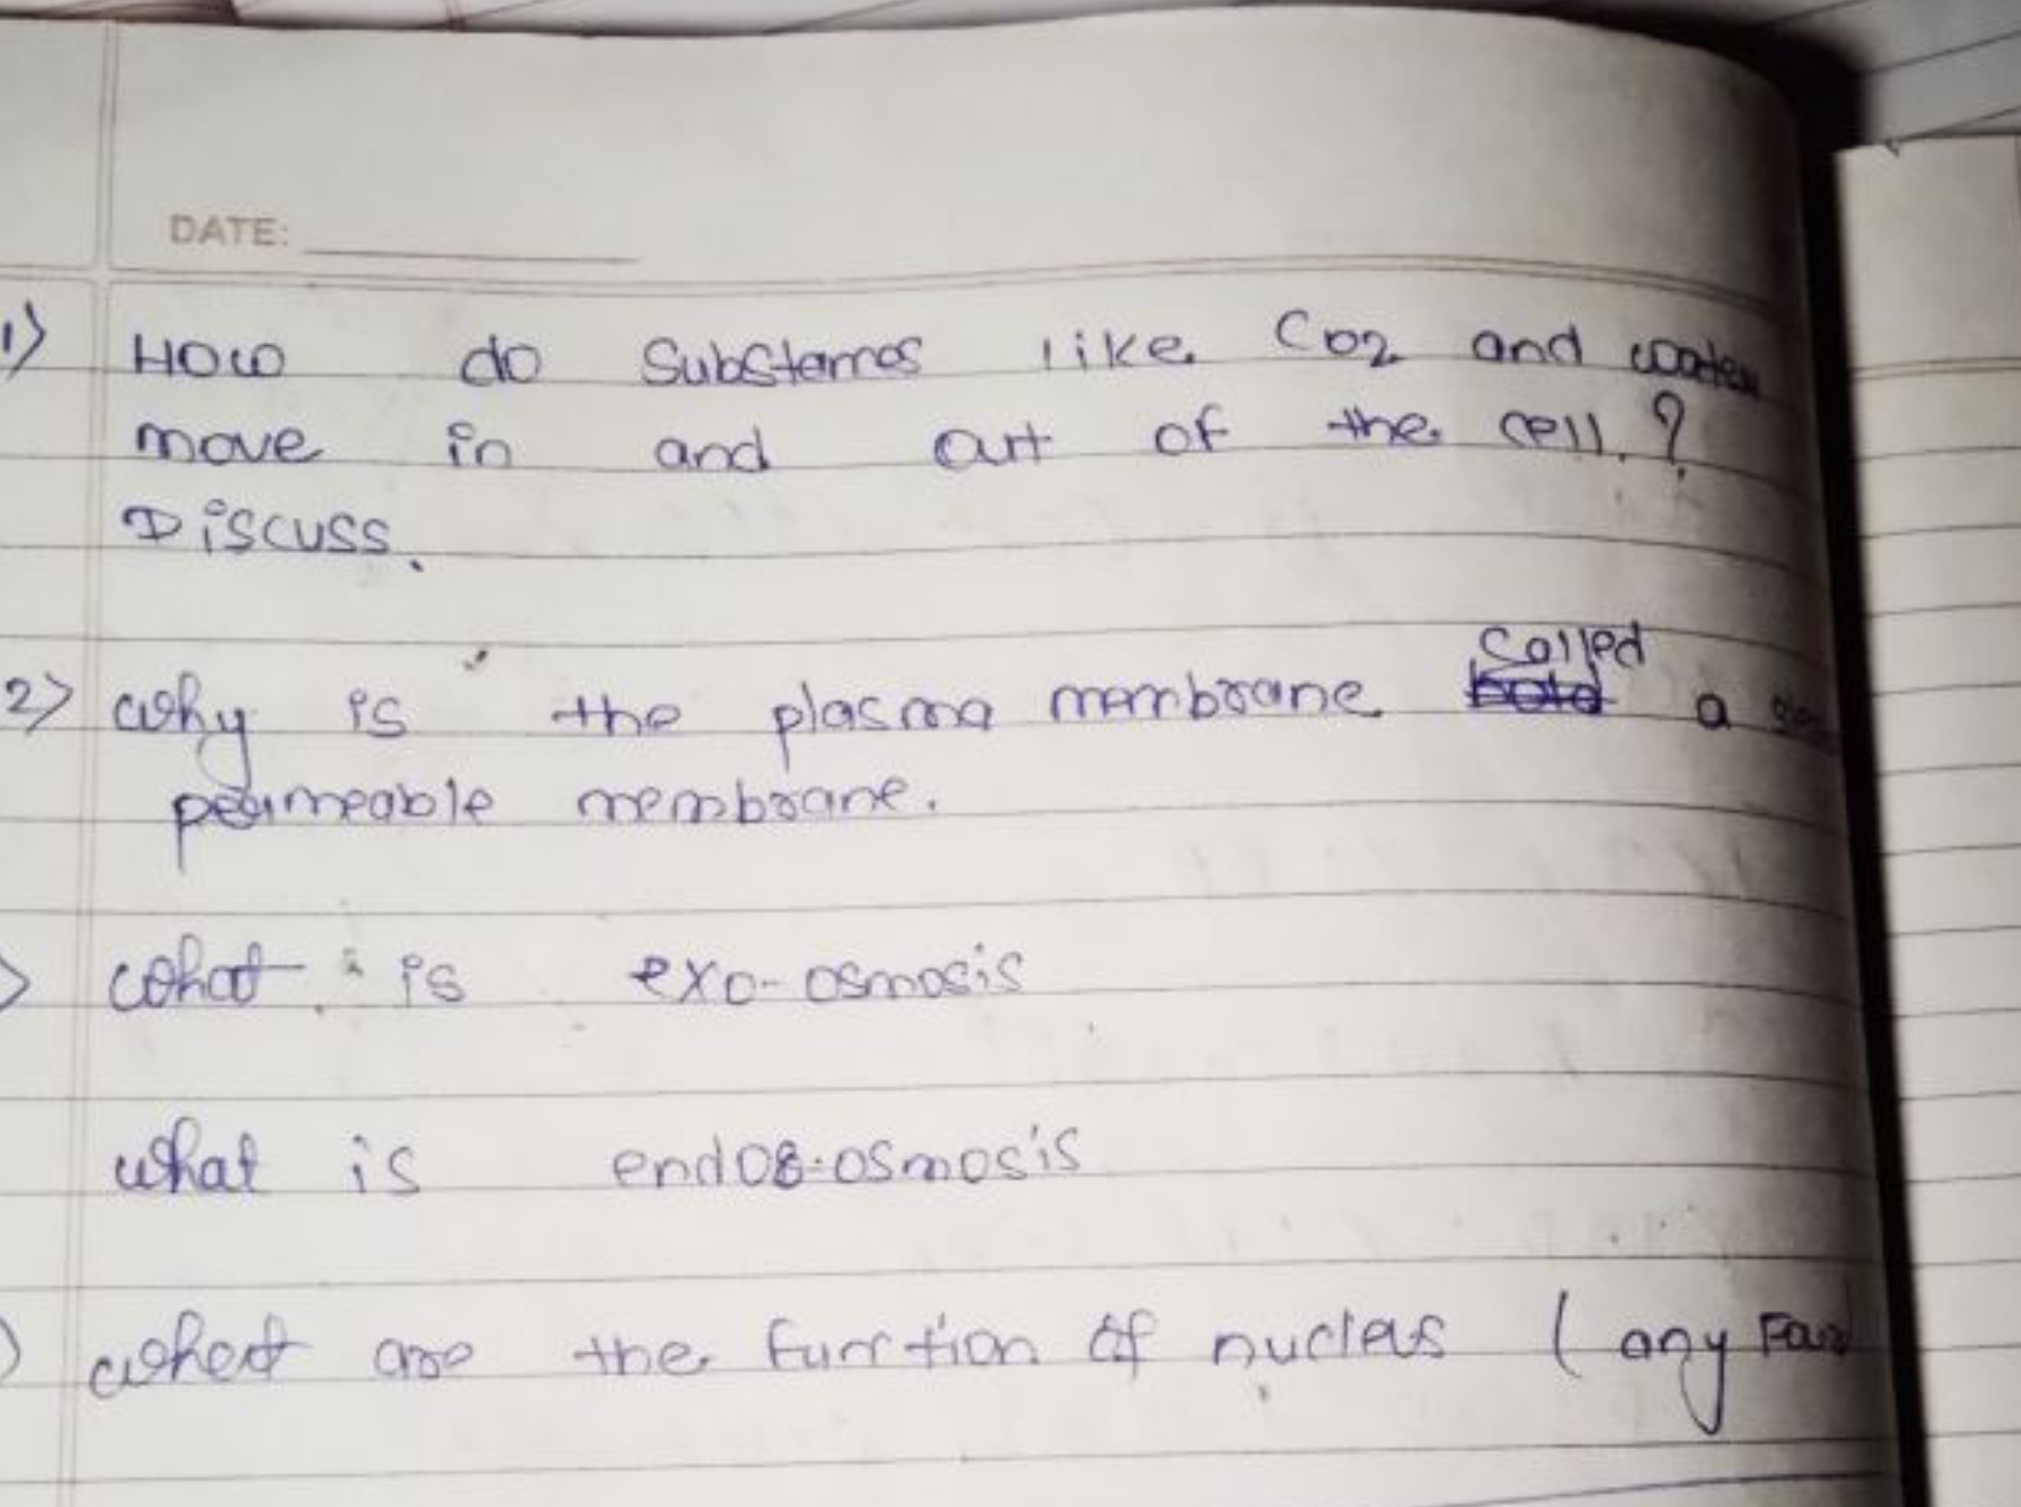 DATE:
1) How do Substames like Co2 and water
move in and out of the cell.?
Discuss.
2) why is the plasma membrane called a
permeable membrane.
> what is exo-osmosis
what is endos-osmosis
) what are the function of nucleus ( any Four